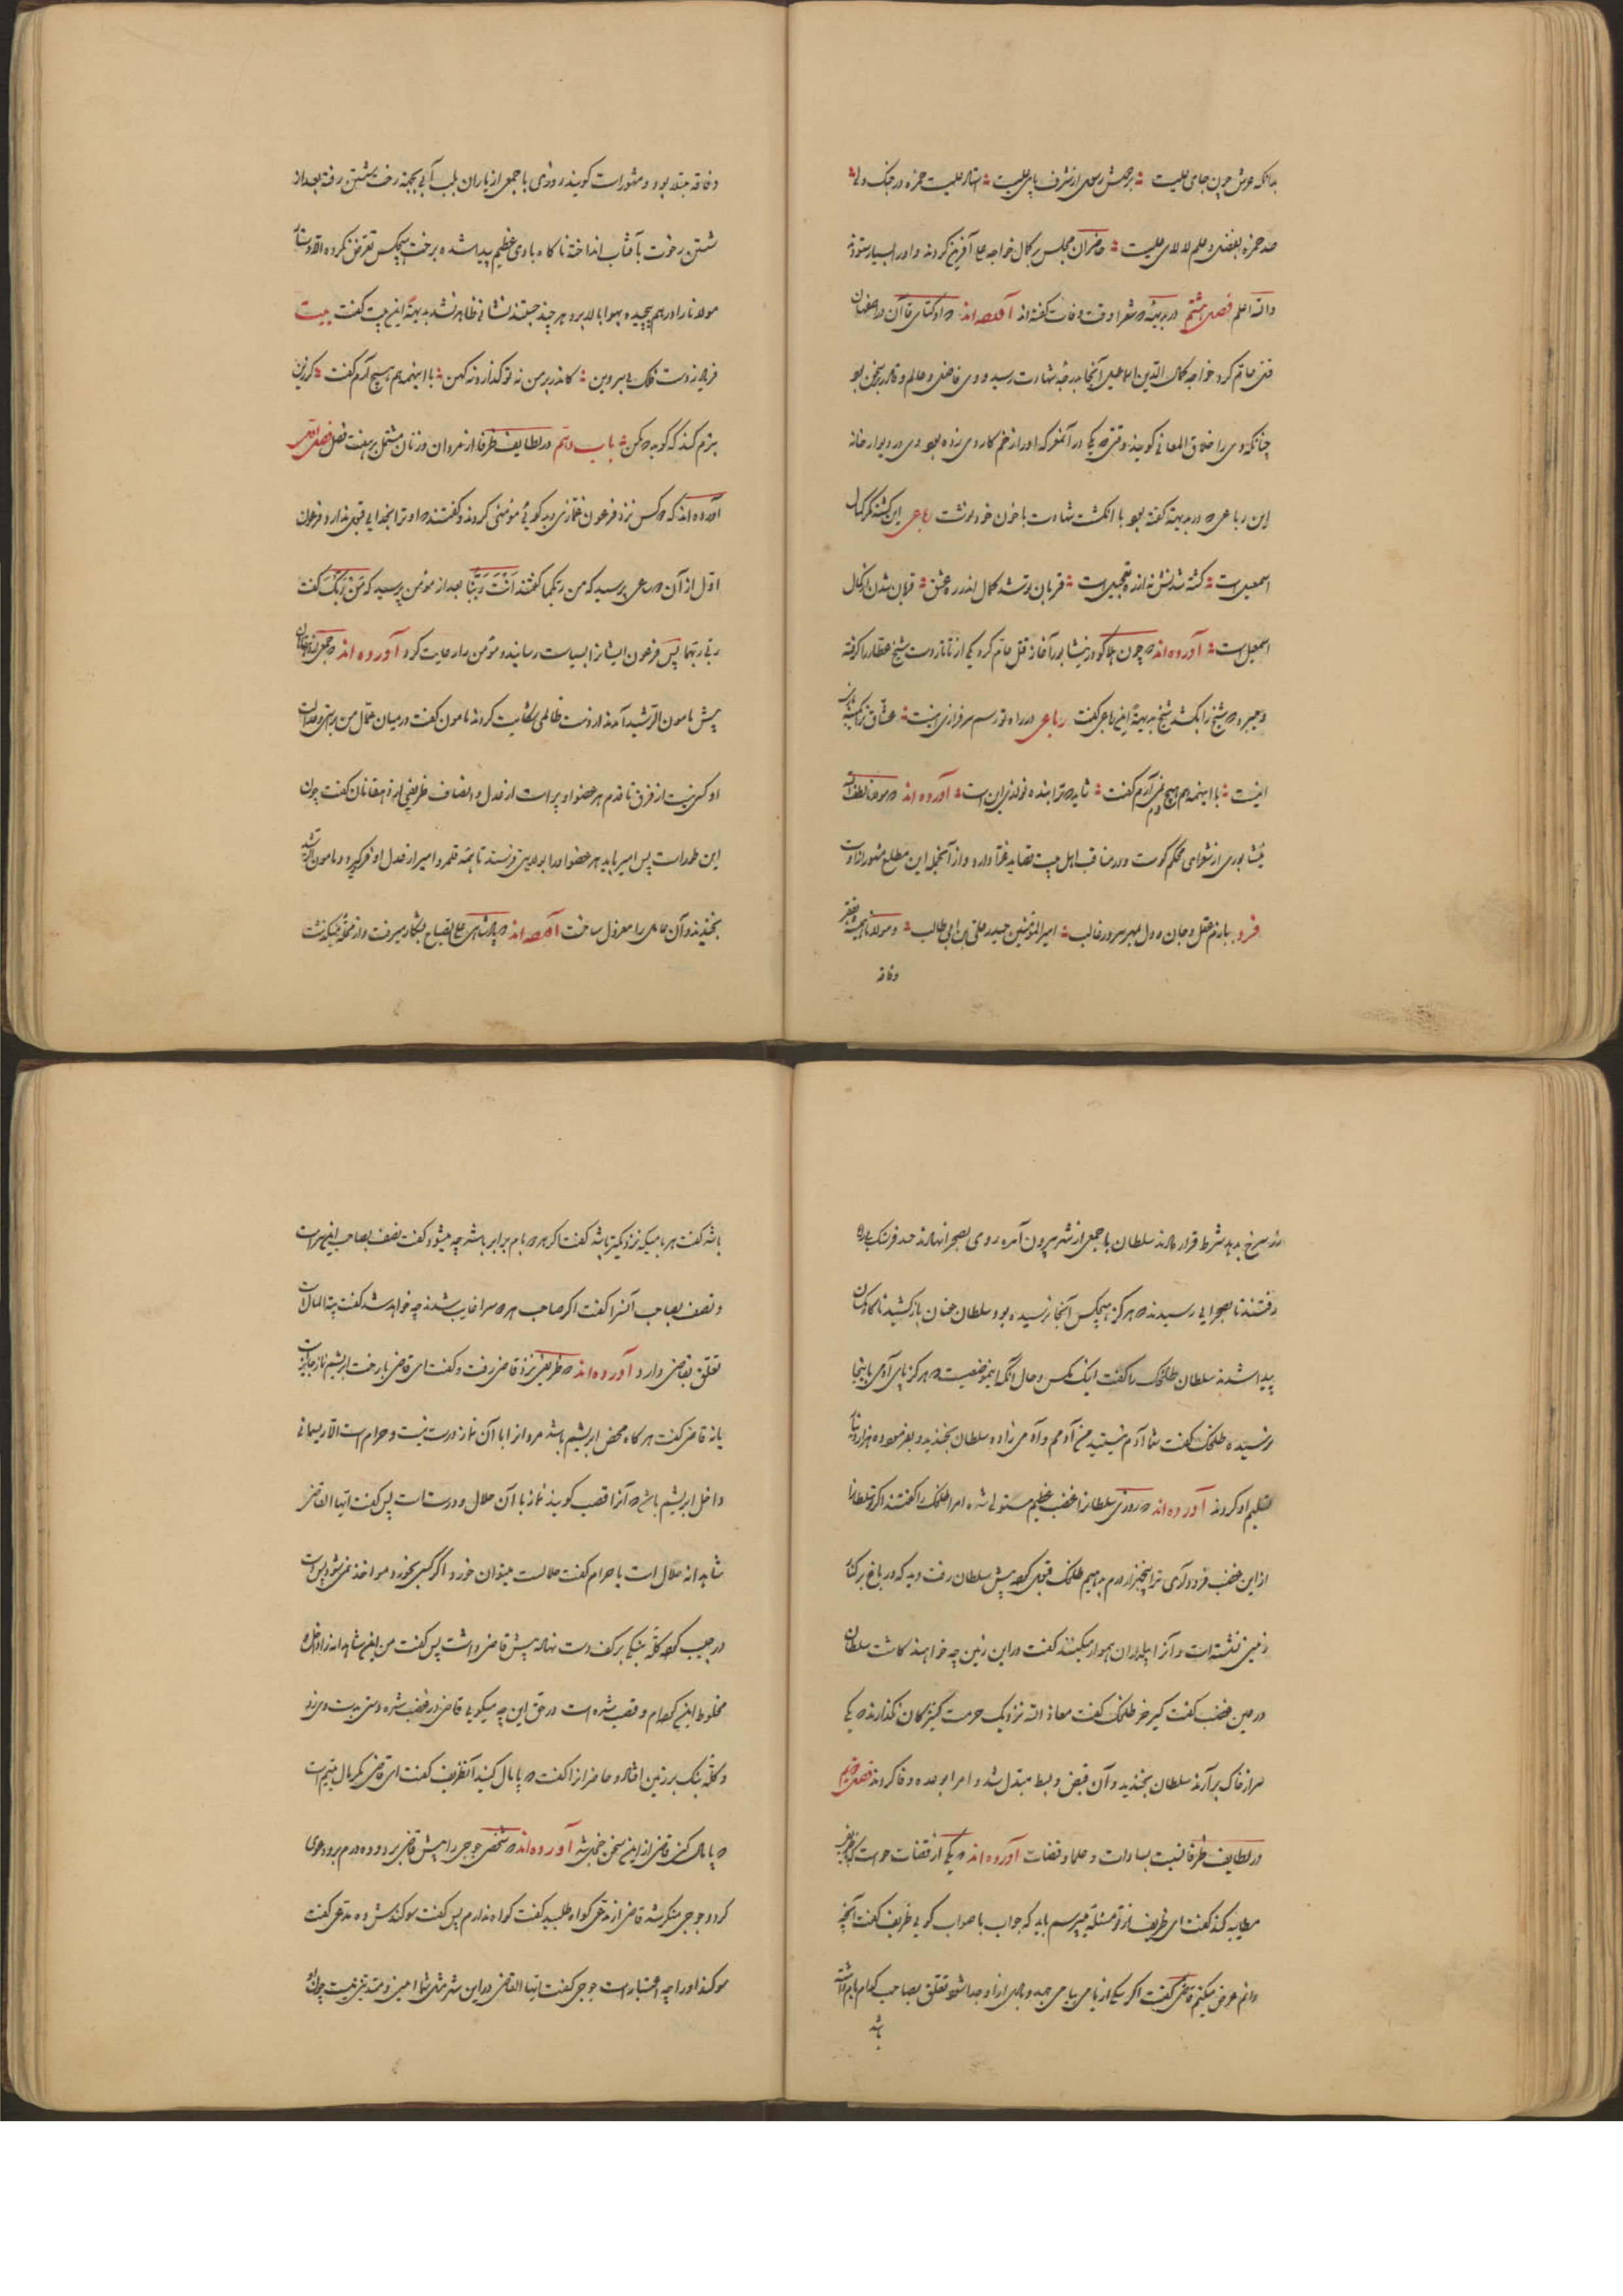 بدانکه عرش چون جای علیست برجیش رسول از شرف پای علیست استاد علیست حمزه در جنگ ولی
صد حمزه بفضل و علم لالای علیست حاضران مجلس بر کمال خواجه علی آفرین کردند و او را بسیار ستودند
والله اعلم فصل هشتم در بدیهه که شعرا وقت وفات گفته‌اند آورده‌اند که اوکتای قاآن در اصفهان
قتل عام کرد خواجه کمال الدین اسماعیل آنجا بدرجه شهادت رسید و وی فاضل و عالم و قادر بر سخن بود
چنانکه وی را خلاق المعانی گویند وقتی که یکی در آن معرکه او را زخم کاردی زده بود وی در دیوار خانه
این رباعی که در بدیهه گفته بود با انگشت شهادت با خون خود نوشت رباعی این کشته نگر کمال
اسمعیل است کشته شدنش نه از ره تعجیل است قربان تو شد کمال اندر ره عشق قربان شدن از کمال
اسمعیل است آورده‌اند که چون هلاکو در نیشابور آغاز قتل عام کرد یکی از تاتار دست شیخ عطار را گرفته
میبرد که شیخ را بکشد شیخ بدیهه این رباعی گفت رباعی در راه تو رسم سرفرازی اینست عشاق ترا کمینه بازی
اینست با اینهمه هم هیچ نمی‌آرم گفت شاید که ترا بنده نوازی این است آورده‌اند که مولانا لطف الله
نیشابوری از شعرای محکم گوست و در مناقب اهل بیت قصاید غرّا دارد و از آنجمله این مطلع مشهور از اوست
فرد بنازم عقل و جان و دل بمهر سرور غالب امیرالمؤمنین حیدر علی بن ابی طالب و مولانا همیشه بفقر
و فاقه
و فاقه مبتلا بود و مشهور است گویند روزی با جمعی از یاران بلب آبی بجهة رخت شستن رفته بعد از
شستن رخوت بآفتاب انداخته ناگاه بادی عظیم پیدا شده برخت هیچکس تعرض نکرده الا دستار
مولانا را در هم پیچیده بهوا بالا برد هر چند جستند نشانی ظاهر نشد بدیهة این بیت گفت بیت
فریاد ز دست فلک بی سر و بن کاندر بر من نه نو گذارد نه کهن با اینهمه هم هیچ نمی‌آرم گفت گر زین
بترم کند که گوید که مکن باب دهم در لطایف ظرفا از مردان و زنان مشتمل بر هفت فصل فصل اول
آورده‌اند که دو کس نزد فرعون غمازی و بدگویی مؤمنی کردند و گفتند که او ترا بخدایی قبول ندارد فرعون
اول از آن دو ساعی پرسید که من ربکما گفتند انت ربنا بعد از مؤمن پرسید که من ربک گفت
ربی ربهما پس فرعون ایشانرا بسیاست رسانید و مؤمن را رعایت کرد آورده‌اند که جمعی از دهاقان
پیش مامون الرشید آمدند از دست ظالمی شکایت کردند مامون گفت در میان عمّال من براستی و عدالت
او کسی نیست از فرق تا قدم هر عضو او پر است از عدل و انصاف ظریفی از دهقانان گفت چون
این طور است پس امیر باید هر عضو او را بولایتی فرستد تا همه قلمرو امیر از عدل او فرو گیرد مامون الرشید
بخندید و آن عامل را معزول ساخت آورده‌اند که پادشاهی علی الصباح بشکار میرفت و از محله میگذشت
زر سرخ بدهد شرط قرار دادند سلطان با جمعی از شهر بیرون آمده روی بصحرا نهادند صد فرسنگ راه
رفتند تا بصحرایی رسیدند که هرگز هیچکس آنجا نرسیده بود سلطان عنان باز کشید ناگاه مگسان
پیدا شدند سلطان طلحک را گفت اینک مگس و حال آنکه اینموضعیست که هرگز پای آدمی باینجا
نرسیده طلحک گفت شما آدم نیستید من آدمم و آدمی زاده سلطان بخندید و بفرمود ده هزار دینار
تسلیم او کردند آورده‌اند که روزی سلطان را غضب عظیم مستولی شد امرا طلحک را گفتند اگر تو سلطان را
از این غضب فرود آری ترا پنجهزار درم بدهیم طلحک قبول کرد پیش سلطان رفت دید که در باغ بر کنار
زمینی نشسته است و آنرا بیلداران هموار میکنند گفت در این زمین چه خواهند کاشت سلطان
در عین غضب گفت کیر خر طلحک گفت معاذ الله نزدیک حرمت کنیزکان نگذارند که یکی
سر از خاک بر آرند سلطان بخندید و آن قبض و بسط مبدل شد و امرا بوعده وفا کردند فصل سیم
در لطایف ظرفا نسبت بسادات و علما و قضات آورده‌اند که یکی از قضات خواست که با ظریفی
مطایبه کند گفت ای ظریف از تو مسئله میپرسم باید که جواب با صواب گویی ظریف گفت آنچه
دانم عرض میکنم قاضی گفت اگر یکی از بامی ببامی جهد و بادی از او جدا شود تعلق بصاحب کدام بام داشته
باشد
باشد گفت هر بامیکه نزدیکتر باشد گفت اگر هر دو بام برابر باشد چه میشود گفت نصف بصاحب این سراست
و نصف بصاحب آنسرا گفت اگر صاحب هر دو سرا غایب شدند چه خواهد شد گفت بیت المال است
تعلق بقاضی دارد آورده‌اند که ظریفی نزد قاضی رفت و گفت ای قاضی با رخت ابریشم نماز جایز است
یا نه قاضی گفت هرگاه محض ابریشم باشد مردانرا با آن نماز درست نیست و حرام است الا ریسمانی
داخل ابریشم باشد که آنرا قصب گویند نماز با آن حلال و درست است پس گفت ایها القاضی
شاهدانه حلال است یا حرام گفت حلالست میتوان خورد اگر کسی بخورد مواخذ نمی‌شود پس دست
در جیب کرد کله بنگی بر کف دست نهاد پیش قاضی داشت پس گفت من این شاهدانه را داخل و
مخلوط این کرده‌ام و قصب شده است در حق این چه میگویی قاضی در غضب شده دستی بدست وی زد
و کله بنگ بر زمین افتاد و حاضرانرا گفت که پامال کنید آنظریف گفت ای قاضی مگر مال یتیم است
که پامال کنی قاضی از این سخن خجل شد آورده‌اند که شخصی جوحی را پیش قاضی برد و ده درم برو دعوی
کرد و جوحی منکر شد قاضی از مدعی گواه طلبید گفت گواه ندارم پس گفت سوگندش ده مدعی گفت
سوگند او را چه اعتبار است جوحی گفت ایها القاضی در این شهر مثل شما امین و متدینی نیست چون او